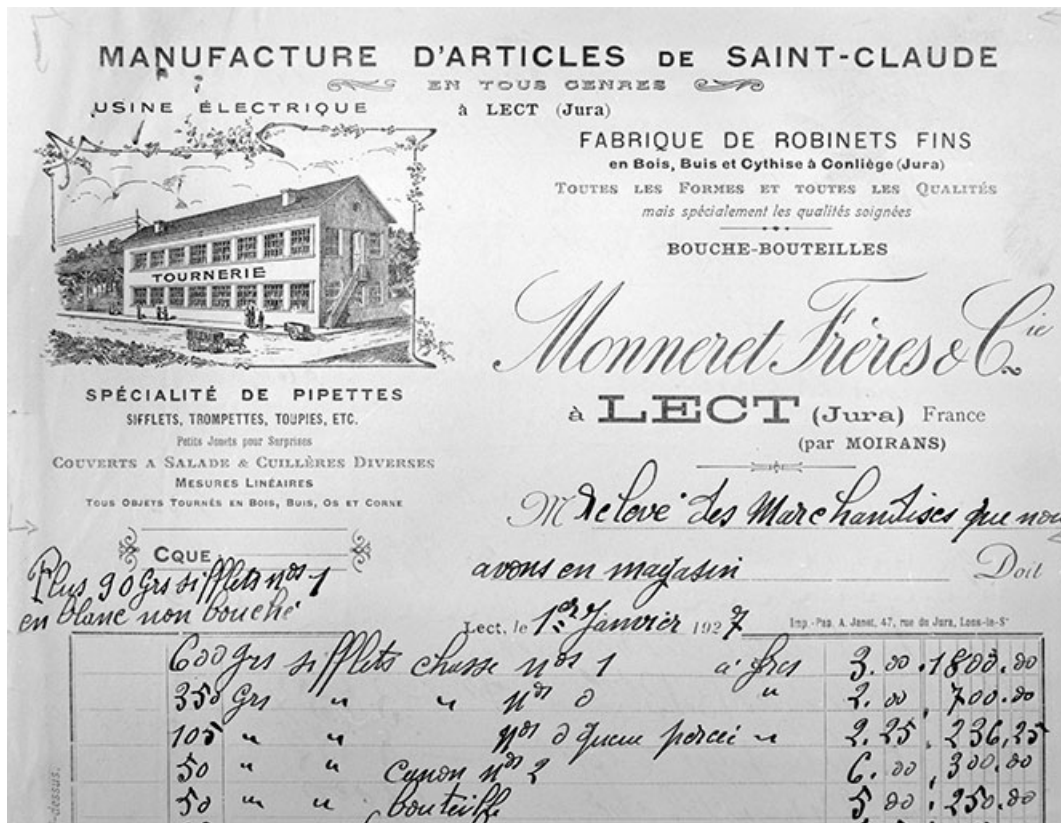 MANUFACTURE D'ARTICLES DE SAINT-CLAUDE
EN TOUS GENRES
à LECT (Jura)
USINE ÉLECTRIQUE
TOURNERIE
SPÉCIALITÉ DE PIPETTES
SIFFLETS, TROMPETTES, TOUPIES, ETC.
Petits Jouets pour Surprises
COUVERTS A SALADE & CUILLÈRES DIVERSES
MESURES LINÉAIRES
TOUS OBJETS TOURNÉS EN BOIS, BUIS, OS ET CORNE
CQUE
FABRIQUE DE ROBINETS FINS
en Bois, Buis et Cythise à Conliège (Jura)
TOUTES LES FORMES ET TOUTES LES QUALITÉS
mais spécialement les qualités soignées
BOUCHE-BOUTEILLES
Monneret Frères & Cie
à LECT (Jura) France
(par MOIRANS)
M Relevé des Marchandises que nou
avons en magasin Doit
Plus 90 Grs sifflets nos 1
en blanc non bouché
Lect, le 1er Janvier 1927
Imp.-Pap. A. Janet, 47, rue du Jura, Lons-le-Sr
600 grs sifflets chasse nos 1 à frcs 3.00 1800.00
350 Grs " " nos 0 " 2.00 700.00
105 " " nos 0 queue percée " 2.25 236,25
50 " " canon nos 2 6.00 300.00
50 " " bouteille 5 00 250.00
dessus.